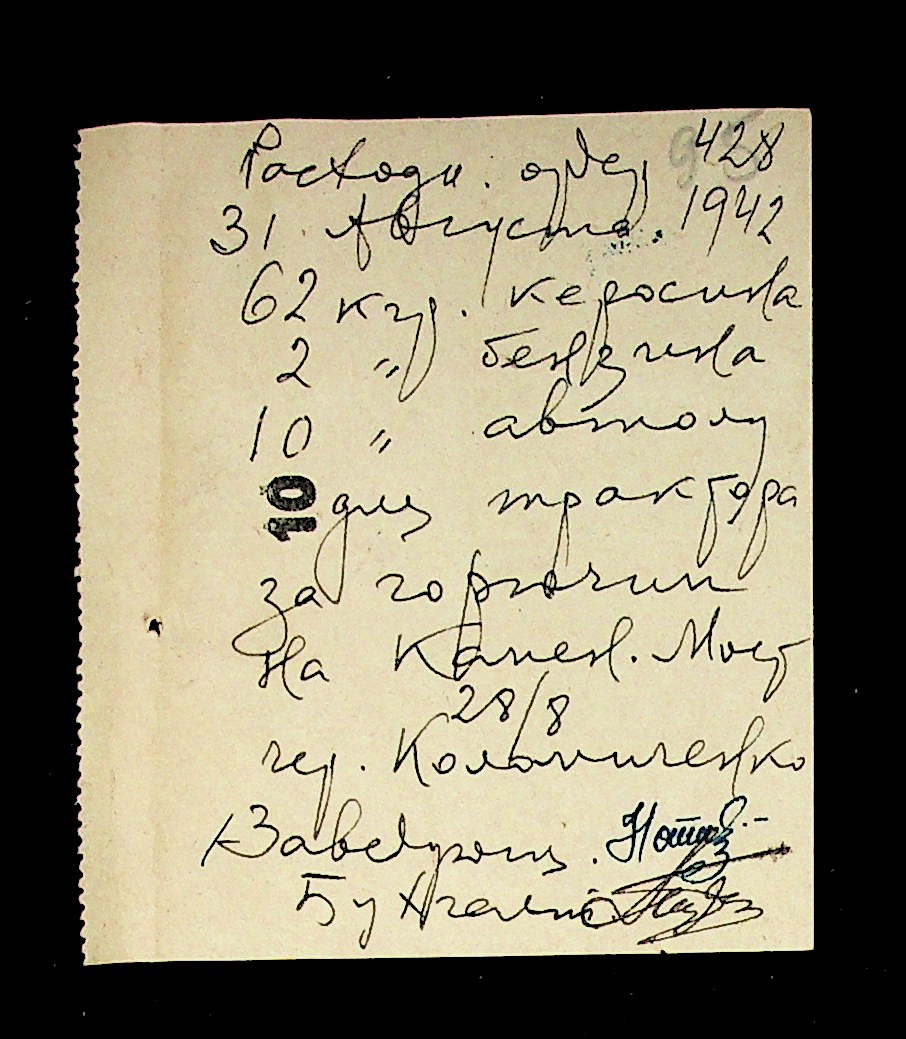 Расходн. ордер 428
31 Августа 1942
62 кгр. керосина
2 " бензина
10 " автолу
10 для трактора
за горючим
на Камен. Мост
28/8
чер. Коломиченко
Заведующ.
Бухгалтер